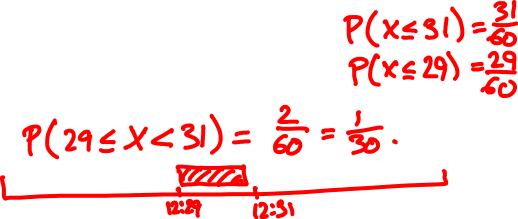 P(X≤31) = 31/60
P(X≤29) = 29/60
P(29≤X<31) = 2/60 = 1/30.
12:29 12:31